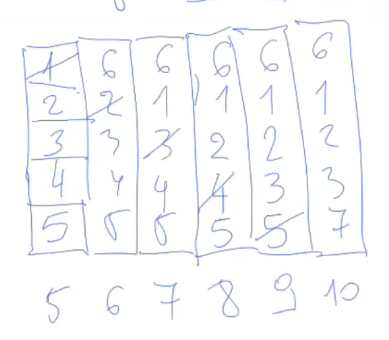 1 6 6 6 6 6
2 2 1 1 1 1
3 3 3 2 2 2
4 4 4 4 3 3
5 5 5 5 5 7
5 6 7 8 9 10